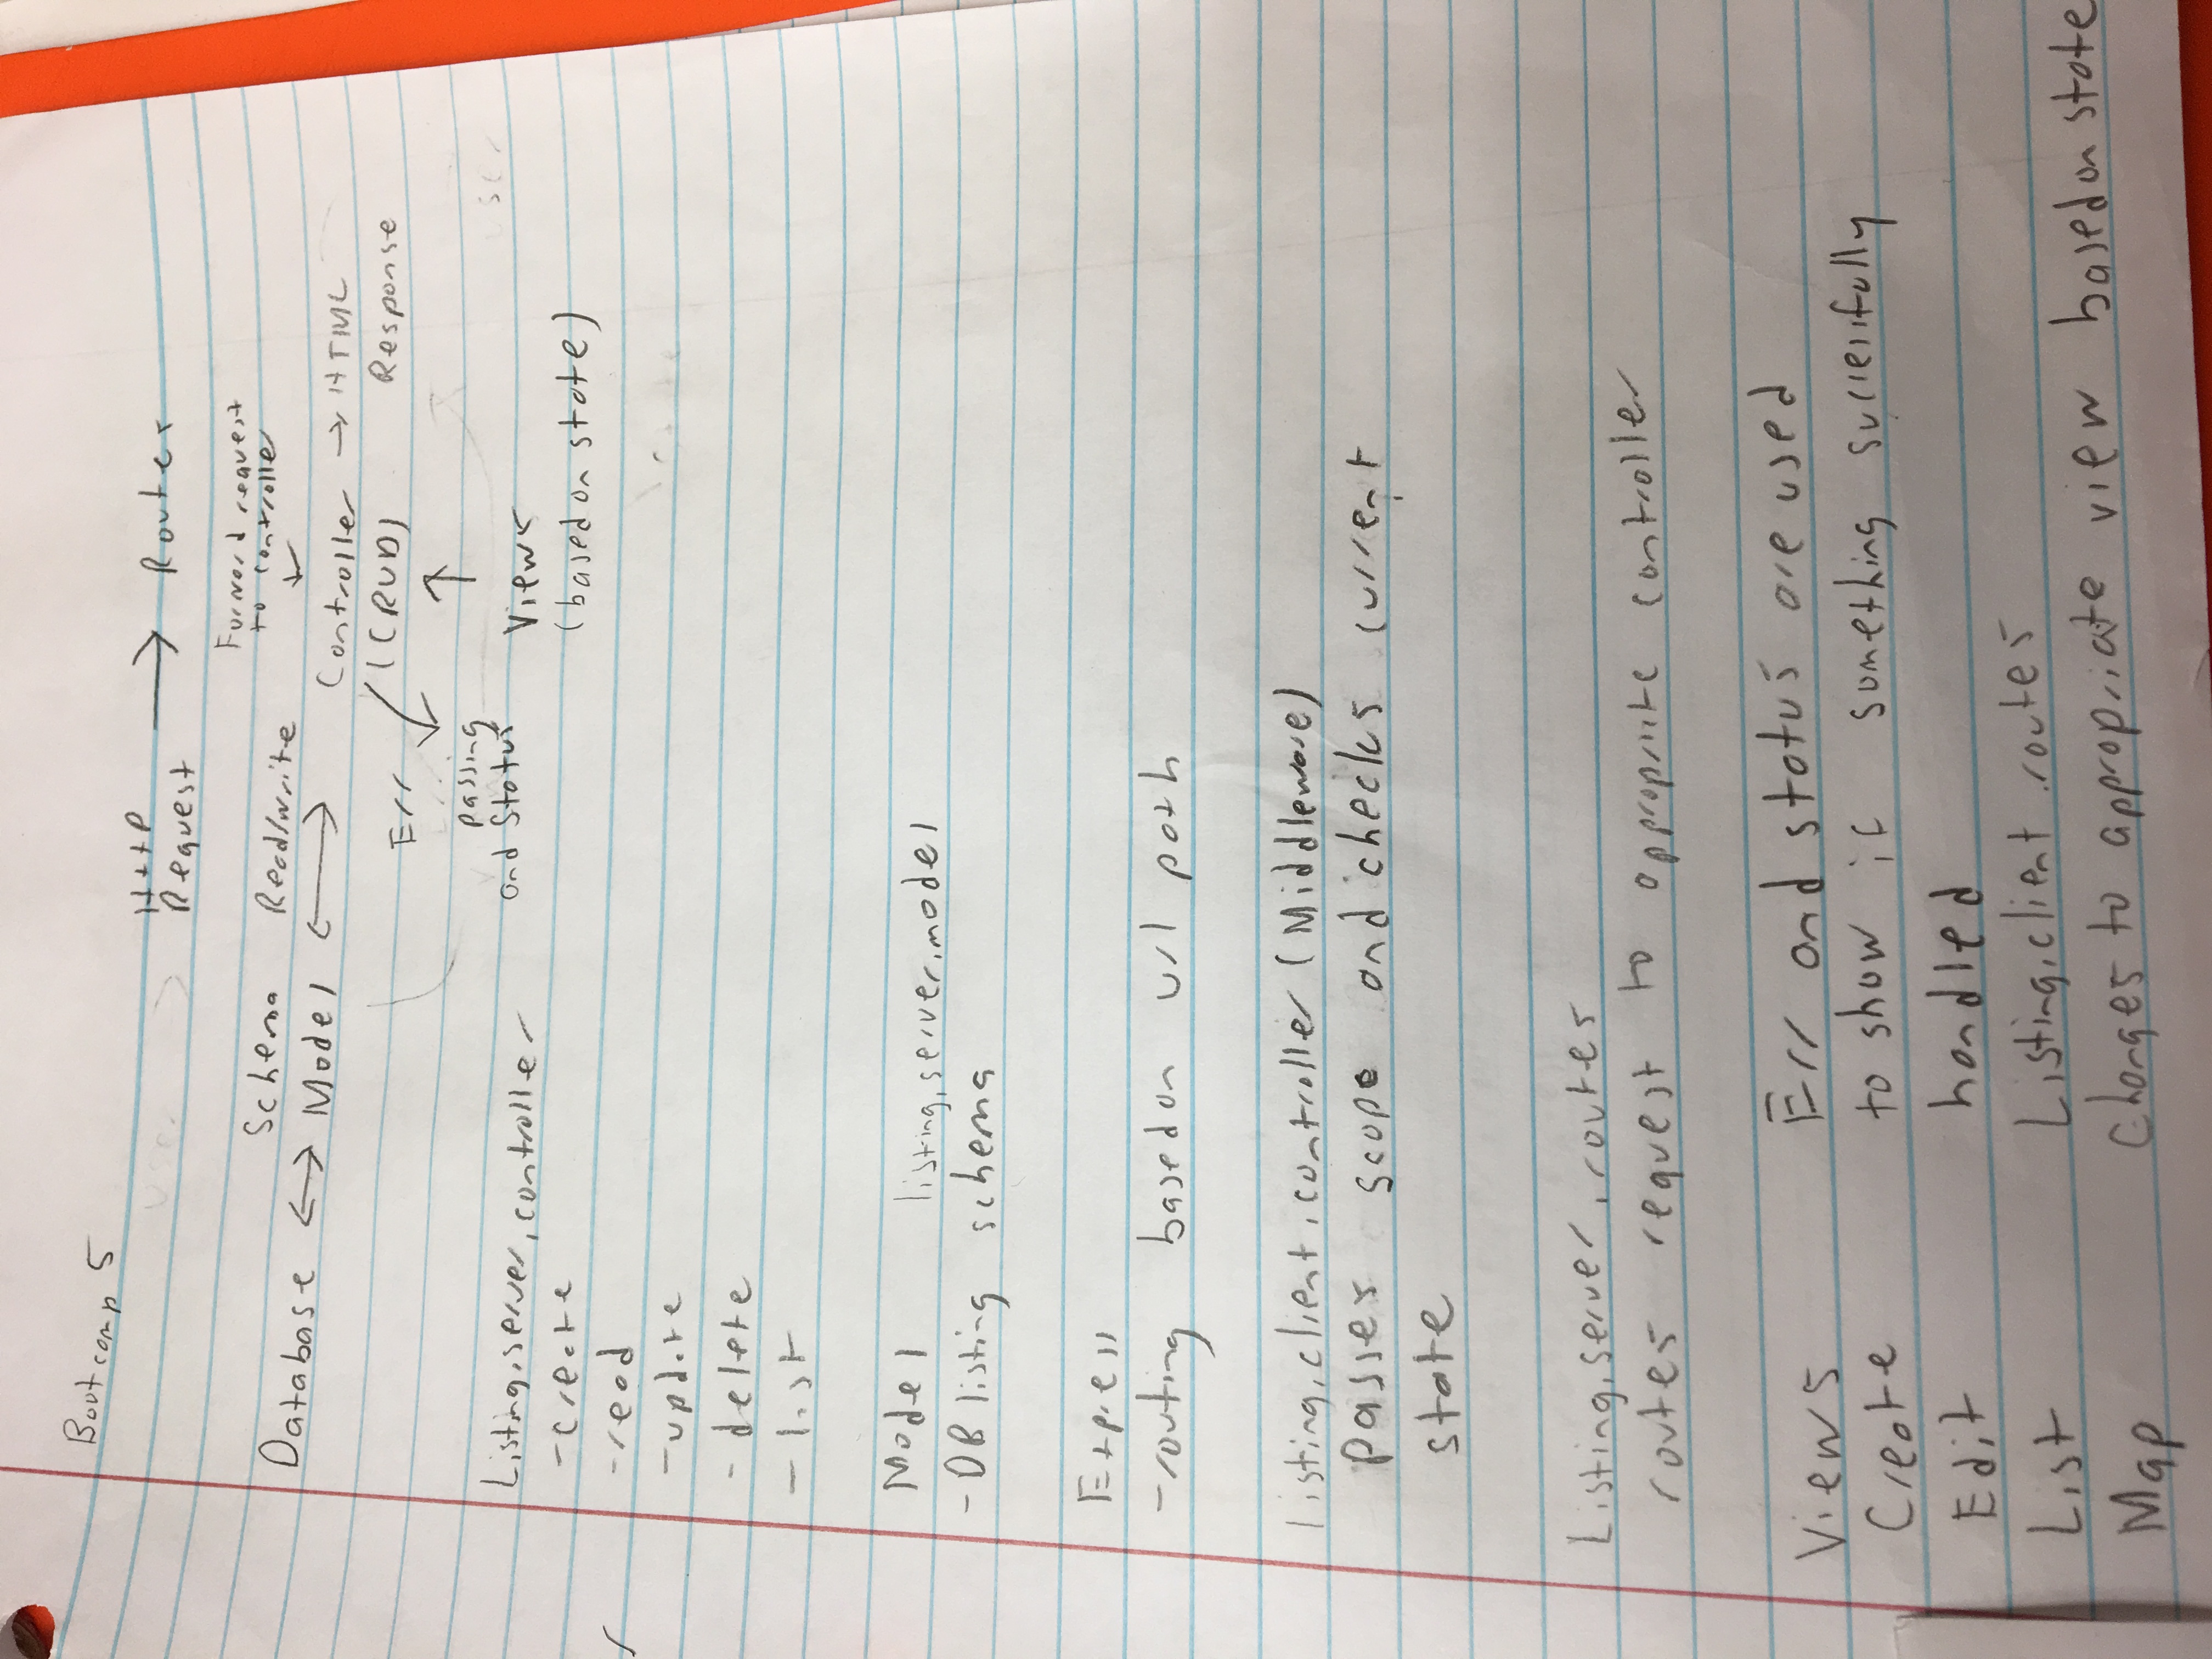 Bootcamp 5
HTTP
Request → Router
Forward request
to controller
↓
Schema Read/write
Database ↔ Model ↔ Controller → HTML
(CRUD) Response
Err
passing
and Status
↑
Views
(based on state)
Listing.server.controller
- create
- read
- update
- delete
- list
Model listing.server.model
- DB listing schema
Express
- routing based on url path
listing.client.controller (Middleware)
passes scope and checks current
state
Listing.server.routes
routes request to appropriate controller
Views
Create
Edit
List
Map
Err and status are used
to show if something successfully
handled
Listing.client.routes
Changes to appropriate view based on state